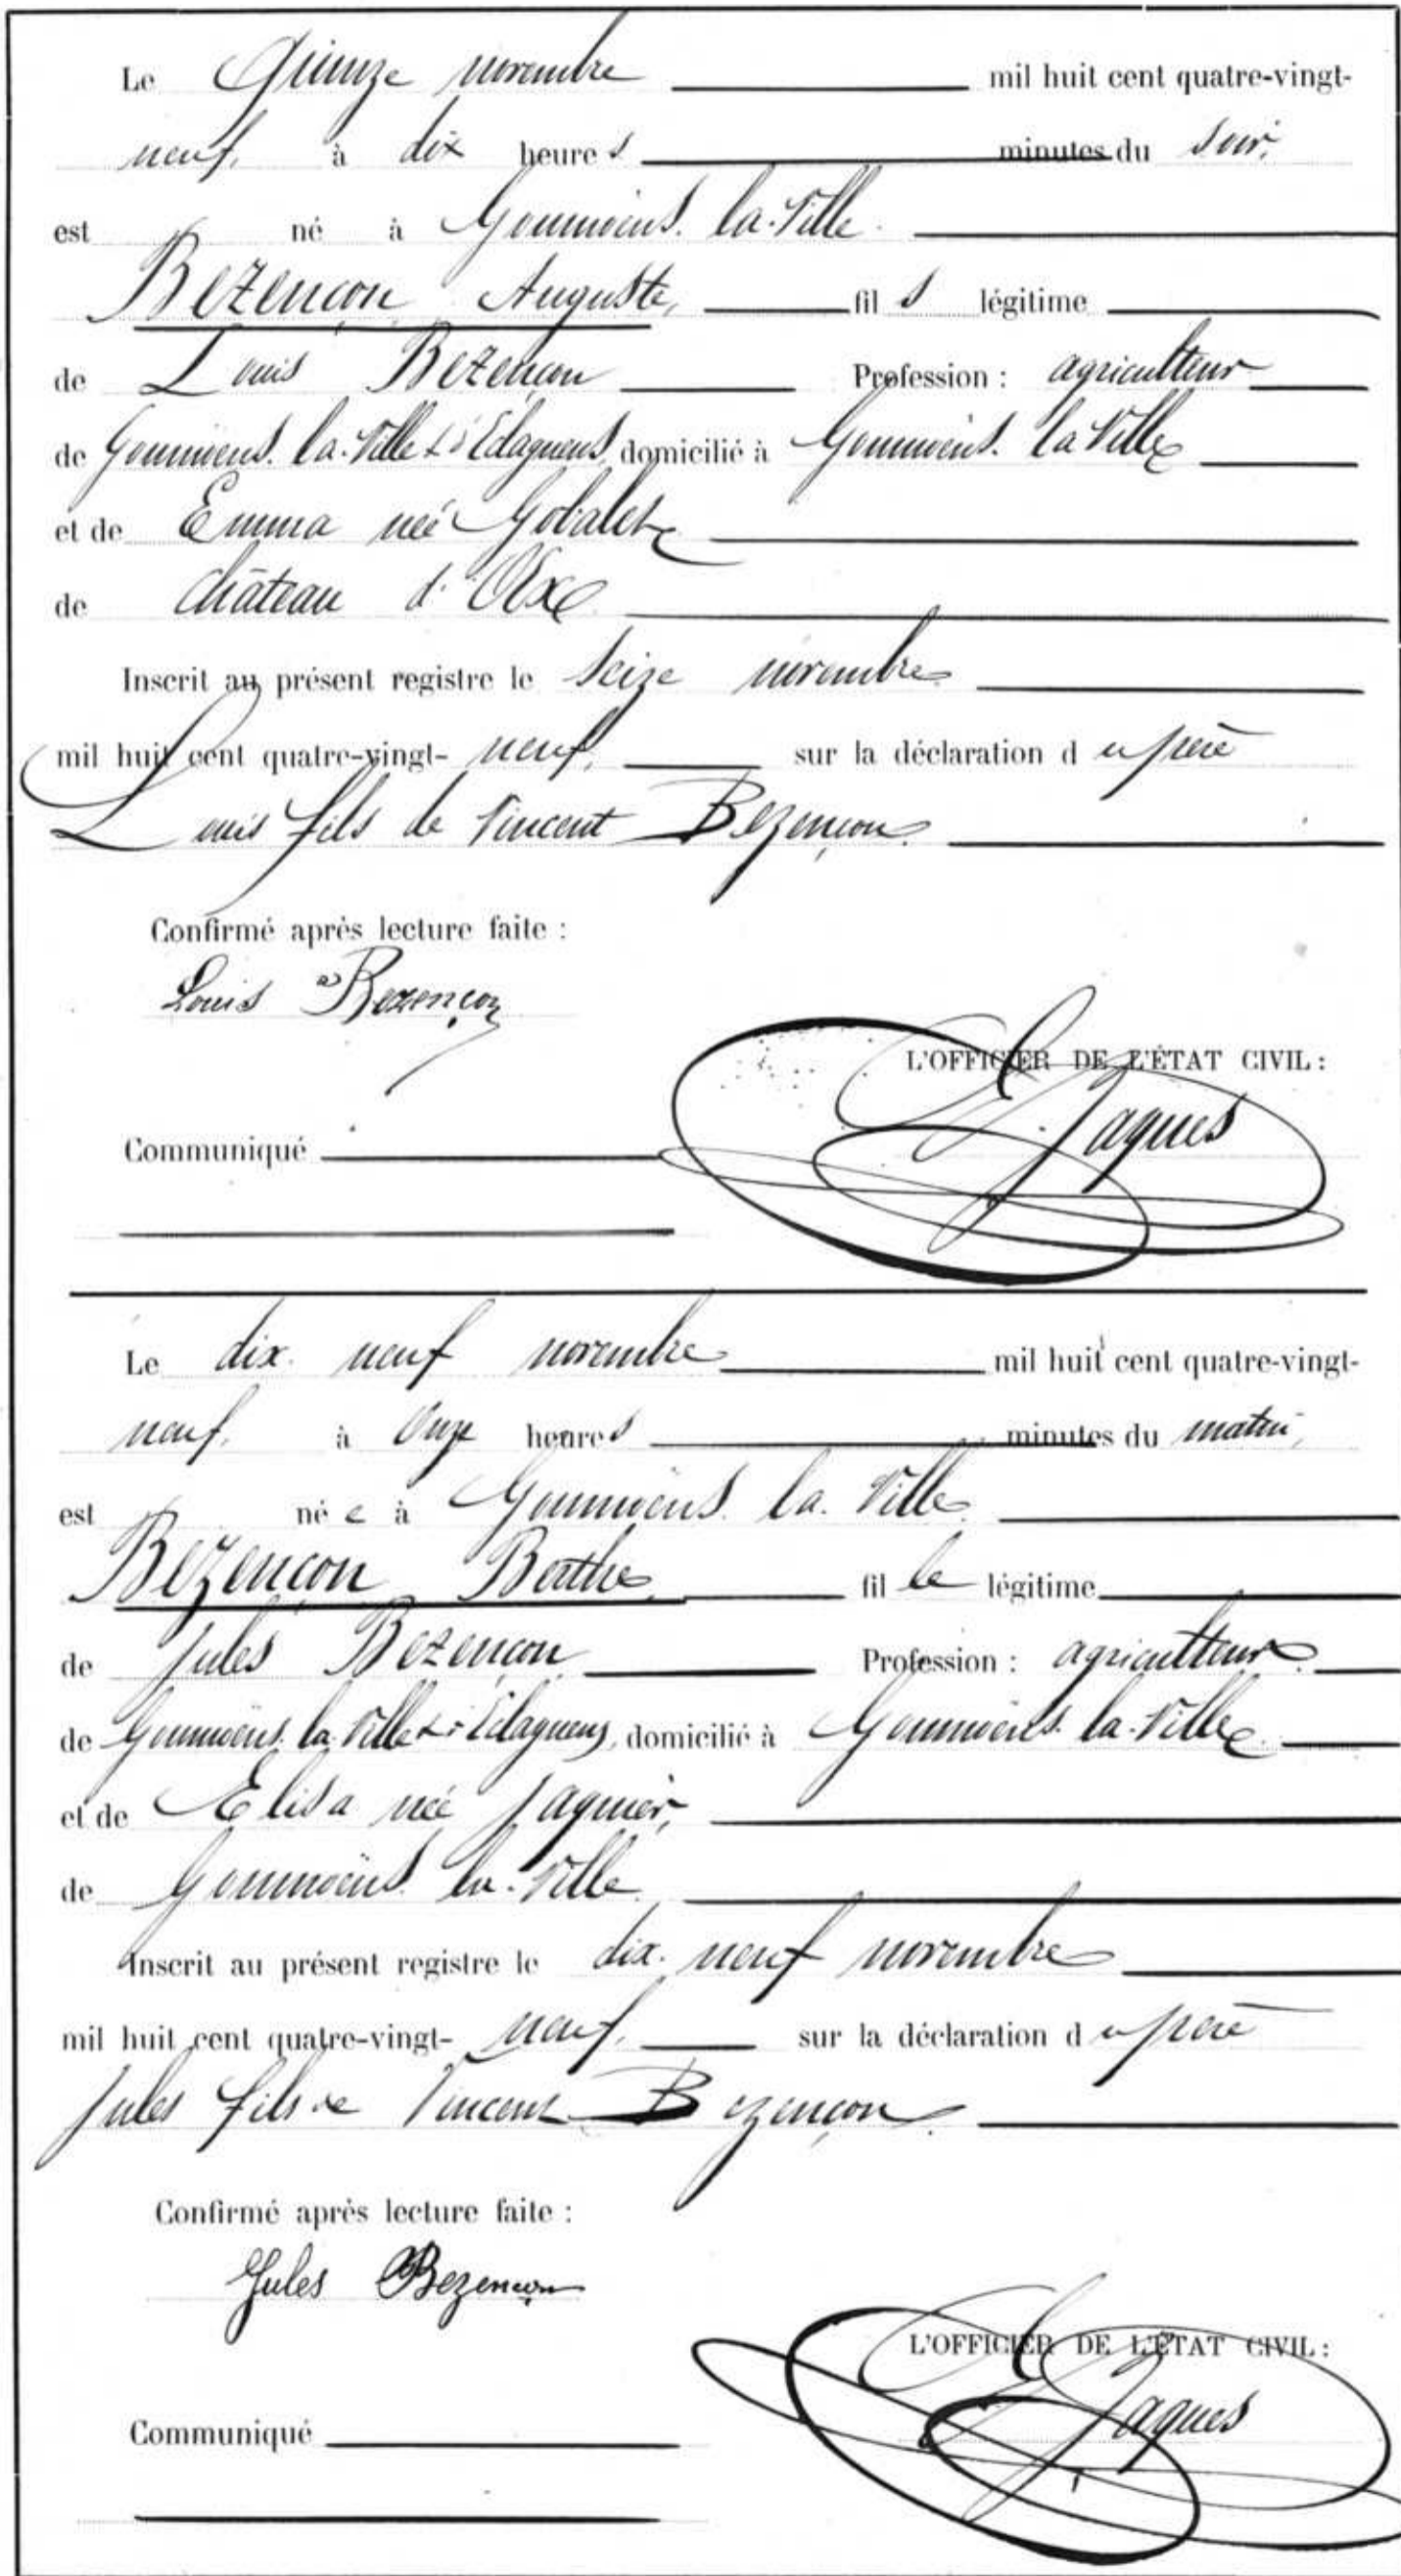 Le Quinze novembre mil huit cent quatre-vingt-
neuf, à dix heures minutes du soir,
est né à Goumoëns. la. Ville.
Bezençon Auguste, fils légitime
de Louis Bezençon Profession : agriculteur
de Goumoëns. la. Ville & d'Eclagnens, domicilié à Goumoëns. la Ville
et de Emma née Gobalet
de Château d'Oex
Inscrit au présent registre le seize novembre
mil huit cent quatre-vingt- neuf, sur la déclaration du père
Louis fils de Vincent Bezençon.
Confirmé après lecture faite :
Louis Bezençon
L'OFFICIER DE L'ÉTAT CIVIL :
Jaques
Communiqué
Le dix. neuf novembre mil huit cent quatre-vingt-
neuf. à Onze heures minutes du matin,
est née à Goumoëns. la. Ville
Bezençon Berthe, fille légitime
de Jules Bezençon Profession : agriculteur.
de Goumoëns. la. Ville & d'Eclagnens, domicilié à Goumoëns. la. Ville.
et de Elisa née Jaquier,
de Goumoëns. la. Ville
Inscrit au présent registre le dix. neuf novembre
mil huit cent quatre-vingt- neuf. sur la déclaration du père
Jules fils de Vincent Bezençon.
Confirmé après lecture faite :
Jules Bezençon
L'OFFICIER DE L'ÉTAT CIVIL :
Jaques
Communiqué